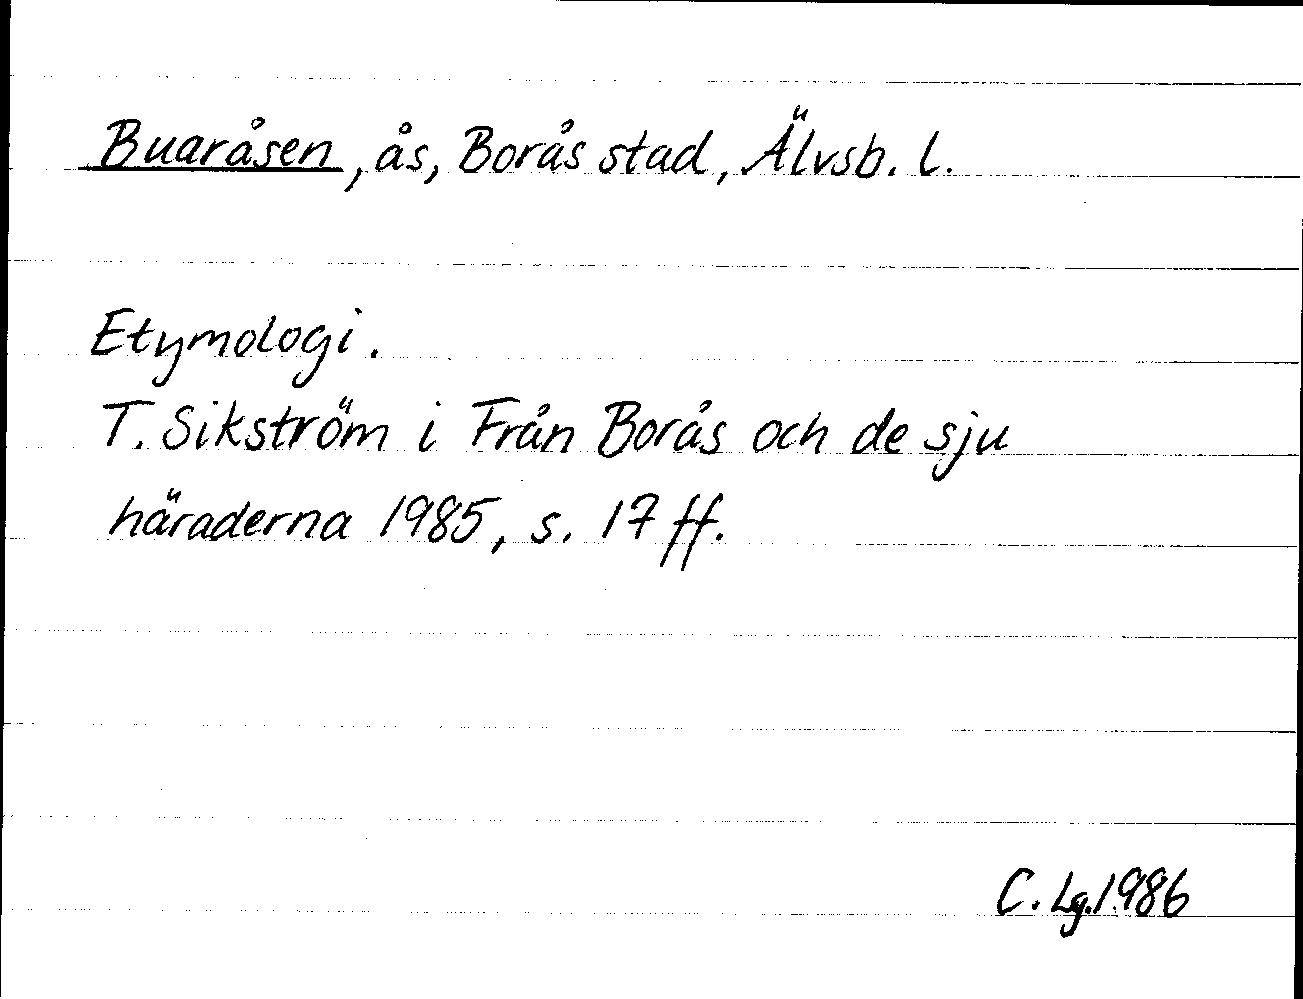 Buaråsen, ås, Borås stad, Älvsb. l.
Etymologi.
T. Sikström i Från Borås och de sju
häraderna 1985, s. 17 ff.
C. Lg. 1986